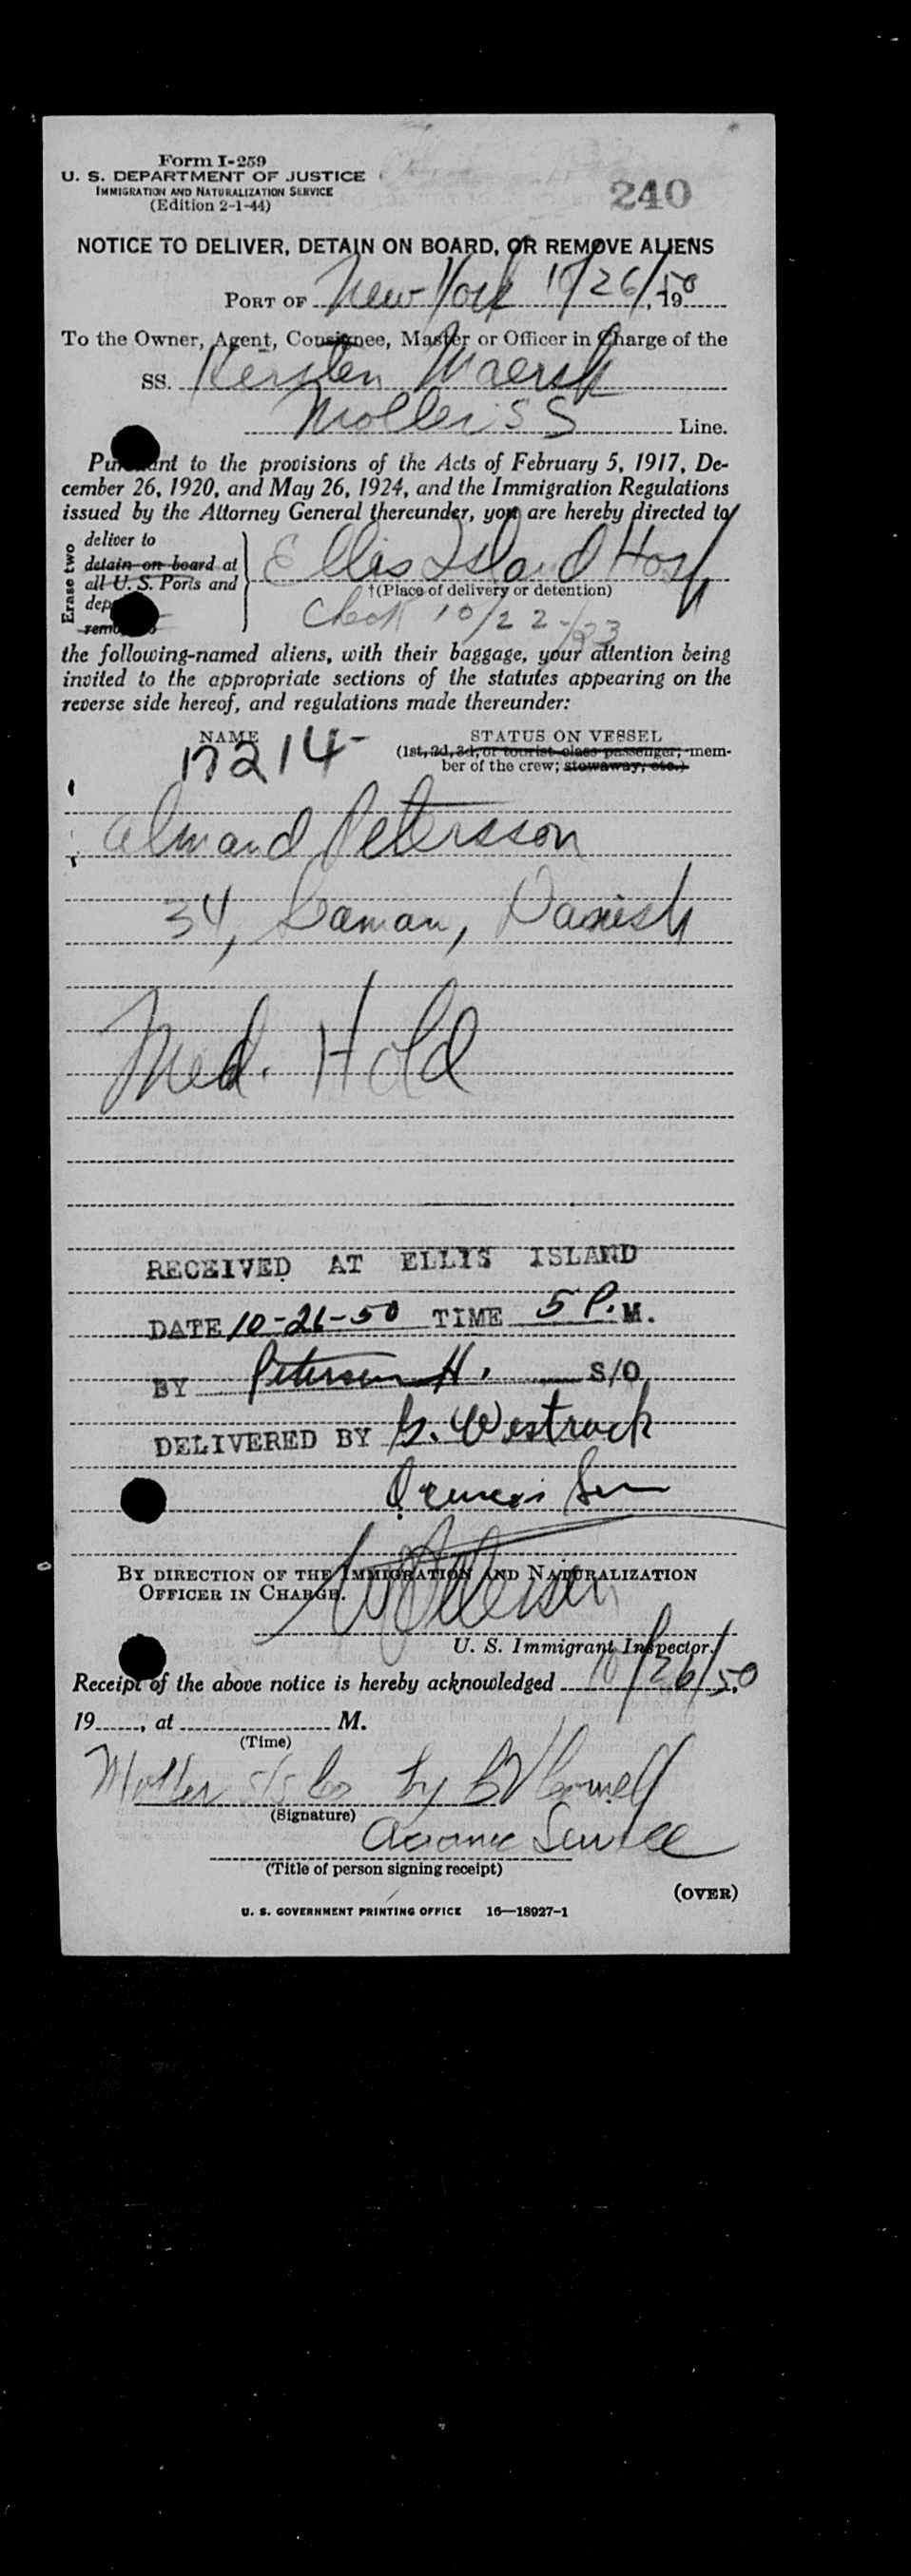 Form I-259
U. S. DEPARTMENT OF JUSTICE
IMMIGRATION AND NATURALIZATION SERVICE
(Edition 2-1-44)
240
NOTICE TO DELIVER, DETAIN ON BOARD, OR REMOVE ALIENS
PORT OF New York 10/26/50, 19
To the Owner, Agent, Consignee, Master or Officer in Charge of the
SS. Kersten Maersk
Moller SS Line.
Pursuant to the provisions of the Acts of February 5, 1917, De-
cember 26, 1920, and May 26, 1924, and the Immigration Regulations
issued by the Attorney General thereunder, you are hereby directed to
Erase two
deliver to
detain on board at
all U. S. Ports and
Ellis Island Hosp
†(Place of delivery or detention)
Check 10/22-/23
the following-named aliens, with their baggage, your attention being
invited to the appropriate sections of the statutes appearing on the
reverse side hereof, and regulations made thereunder:
NAME
STATUS ON VESSEL
17214-
(1st, 2d, 3d, or tourist class passenger; mem-
ber of the crew; stowaway, etc.)
Almand Petersson
34, Seaman, Danish
Med. Hold
RECEIVED AT ELLIS ISLAND
DATE 10-26-50 TIME 5 P.M.
BY Peterson H. S/O
DELIVERED BY G. Westrack
BY DIRECTION OF THE IMMIGRATION AND NATURALIZATION
OFFICER IN CHARGE.
U. S. Immigrant Inspector.
Receipt of the above notice is hereby acknowledged 10/26/50,
19......, at .................... M.
(Time)
Moller S/S Co by
(Signature)
Service
(Title of person signing receipt)
(OVER)
U. S. GOVERNMENT PRINTING OFFICE 16—18927-1